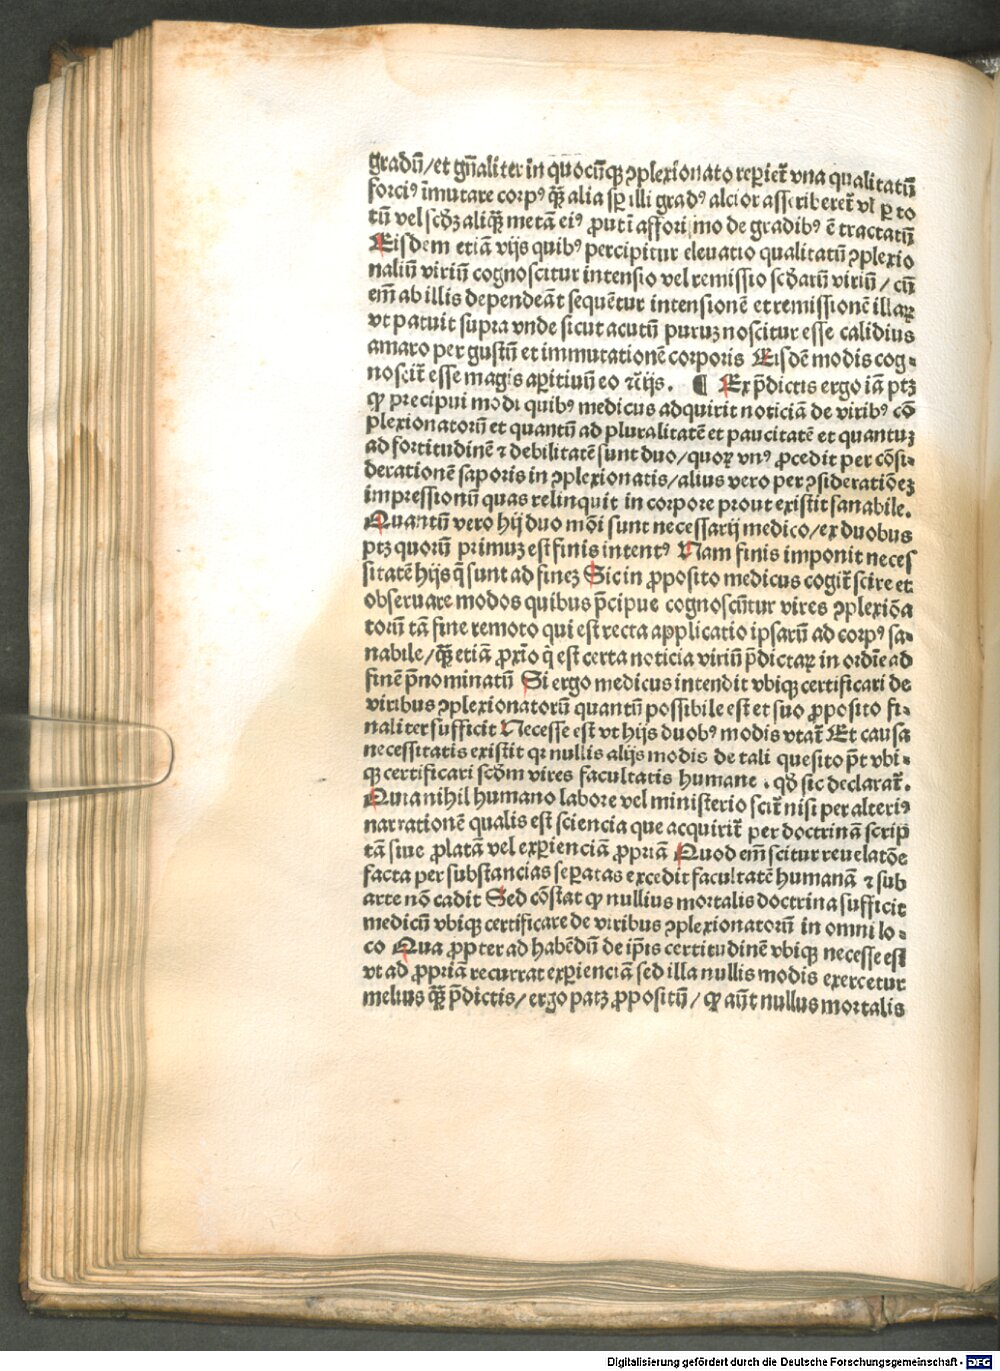 gradū/et gñaliter in quocūqꝫ ꝯplexionato reꝑiet᷑ vna qualitatū
forciꝰ īmutare corpꝰ qꝫ̄ alia sꝑ illi gradꝰ alcior asscriberet᷑ vl ꝑ to
tū vel scd̄ꝫ aliqꝫ̄ metā eiꝰ ꝓut ī afforismo de gradibꝰ ē tractatū
Eisdem etiā vijs quibꝰ percipitur eleuatio qualitatū ꝯplexio
naliū viriū cognoscitur intensio vel remissio scd̄arū viriū / cū
em̄ ab illis dependeāt sequētur intensionē et remissionē illaꝝ
vt patuit supra vnde sicut acutū puruꝫ noscitur esse calidius
amaro per gustū et immutationē corporis Eisdē modis cog⸗
noscit᷑ esse magis aꝑitiuū eo ⁊c̄ijs. ¶ Ex p̄dictis ergo iā ptꝫ
ꝙ precipui modi quibꝰ medicus adquirit noticiā de viribꝰ cō
plexionatorū et quantū ad pluralitatē et paucitatē et quantuꝫ
ad fortitudinē ⁊ debilitatē sunt duo/quoꝝ vnꝰ ꝓcedit per cōsi⸗
derationē saporis in ꝯplexionatis/alius vero per ꝯsideratiōeꝫ
impressionū quas relinquit in corpore prout existit sanabile.
Quantū vero hij duo mōi sunt necessarij medico/ex duobus
ptꝫ quorū primuꝫ est finis intentꝰ Nam finis imponit neces
sitatē hijs q̄ sunt ad fineꝫ Sic in ꝓposito medicus cogit᷑ scire et
obseruare modos quibus p̄cipue cognoscūtur vires ꝯplexiōa
torū tā fine remoto qui est recta applicatio ipsarū ad corpꝰ sa⸗
nabile/qꝫ̄ etiā ꝓxīo q̄ est certa noticia viriū p̄dictaꝝ in ordīe ad
finē p̄nominatū Si ergo medicus intendit vbiqꝫ certificari de
viribus ꝯplexionatorū quantū possibile est et suo ꝓposito fi⸗
naliter sufficit Necesse est vt hijs duobꝰ modis vtat᷑ Et causa
necessitatis existit qꝛ nullis alijs modis de tali quesito p̄t vbi⸗
qꝫ certificari scd̄m vires facultatis humane . qd̄ sic declarat᷑.
Quia nihil humano labore vel ministerio scit᷑ nisi per alteriꝰ
narrationē qualis est sciencia que acquirit᷑ per doctrinā scrip
tā siue ꝓlatā vel exꝑienciā ꝓpriā Quod em̄ scitur reuelatōe
facta per substancias seꝑatas excedit facultatē humanā ⁊ sub
arte nō cadit Sed cōstat ꝙ nullius mortalis doctrina sufficit
medicū vbiqꝫ certificare de viribus ꝯplexionatorū in omni lo⸗
co Qua ꝓpter ad habēdū de ip̄is certitudinē vbiqꝫ necesse est
vt ad ꝓpriā recurrat exꝑienciā sed illa nullis modis exercetur
melius qꝫ̄ p̄dictis/ergo patꝫ ꝓpositū/ꝙ aūt nullus mortalis
Digitalisierung gefördert durch die Deutsche Forschungsgemeinschaft - DFG